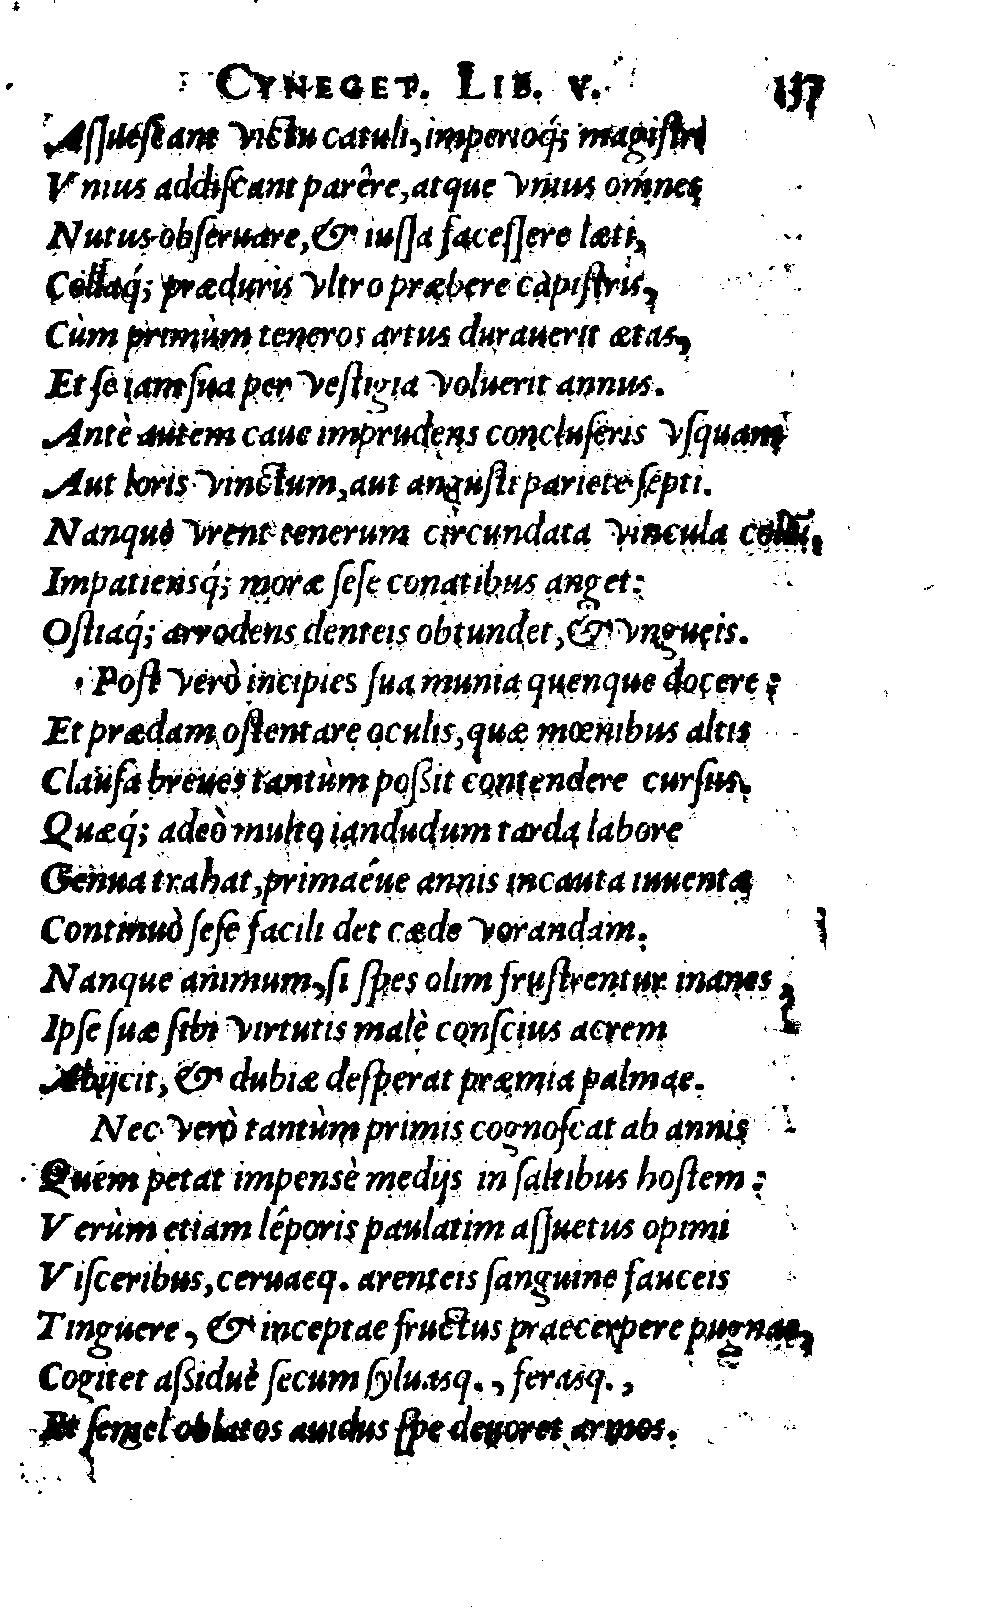 CYNEGET. LIB. V. 137
Aſſueſcant victu catuli, imperioq́; magiſtri
Vnius addiſcant parêre, atque vnius omnes
Nutus obſeruare, & iuſſa faceſſere læti,
Collaq́; præduris vltro præbere capiſtris,
Cùm primùm teneros artus durauerit ætas,
Et ſe iam ſua per veſtigia voluerit annus.
Antè autem caue imprudens concluſeris vſquam
Aut loris vinctum, aut anguſti pariete ſepti.
Nanque vrent tenerum circundata vincula collũ,
Impatiensq́; moræ ſeſe conatibus anget:
Oſtiaq́; arrodens denteis obtundet, & vngueis.
Poſt verò incipies ſua munia quenque docere:
Et prædam oſtentare oculis, quæ mœnibus altis
Clauſa breues tantùm poſsit contendere curſus,
Quæq́; adeò multo iandudum tarda labore
Genua trahat, primaéue annis incauta iuuentæ
Continuò ſeſe facili det cæde vorandam.
Nanque animum, ſi ſpes olim fruſtrentur inanes,
Ipſe ſuæ ſibi virtutis malè conſcius acrem
Abijcit, & dubiæ deſperat præmia palmae.
Nec verò tantùm primis cognoſcat ab annis
Quem petat impensè medijs in ſaltibus hoſtem:
Verùm etiam léporis paulatim aſſuetus opimi
Viſceribus, ceruaeq. arenteis ſanguine fauceis
Tinguere, & inceptae fructus praecerpere pugnae,
Cogitet aſsiduè ſecum ſyluasq., ferasq.,
Et ſemel oblatos auidus ſpe deuoret armos.